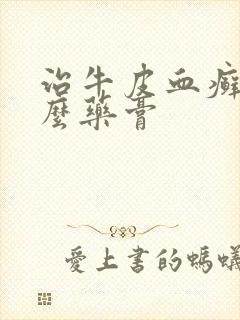 治牛皮血癣
麼藥膏
愛上書的螞蟻